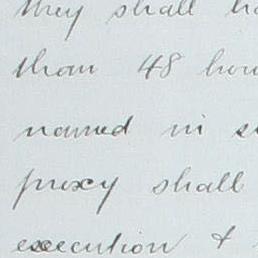 they shall
than 48
named in
proxy shall
execution &